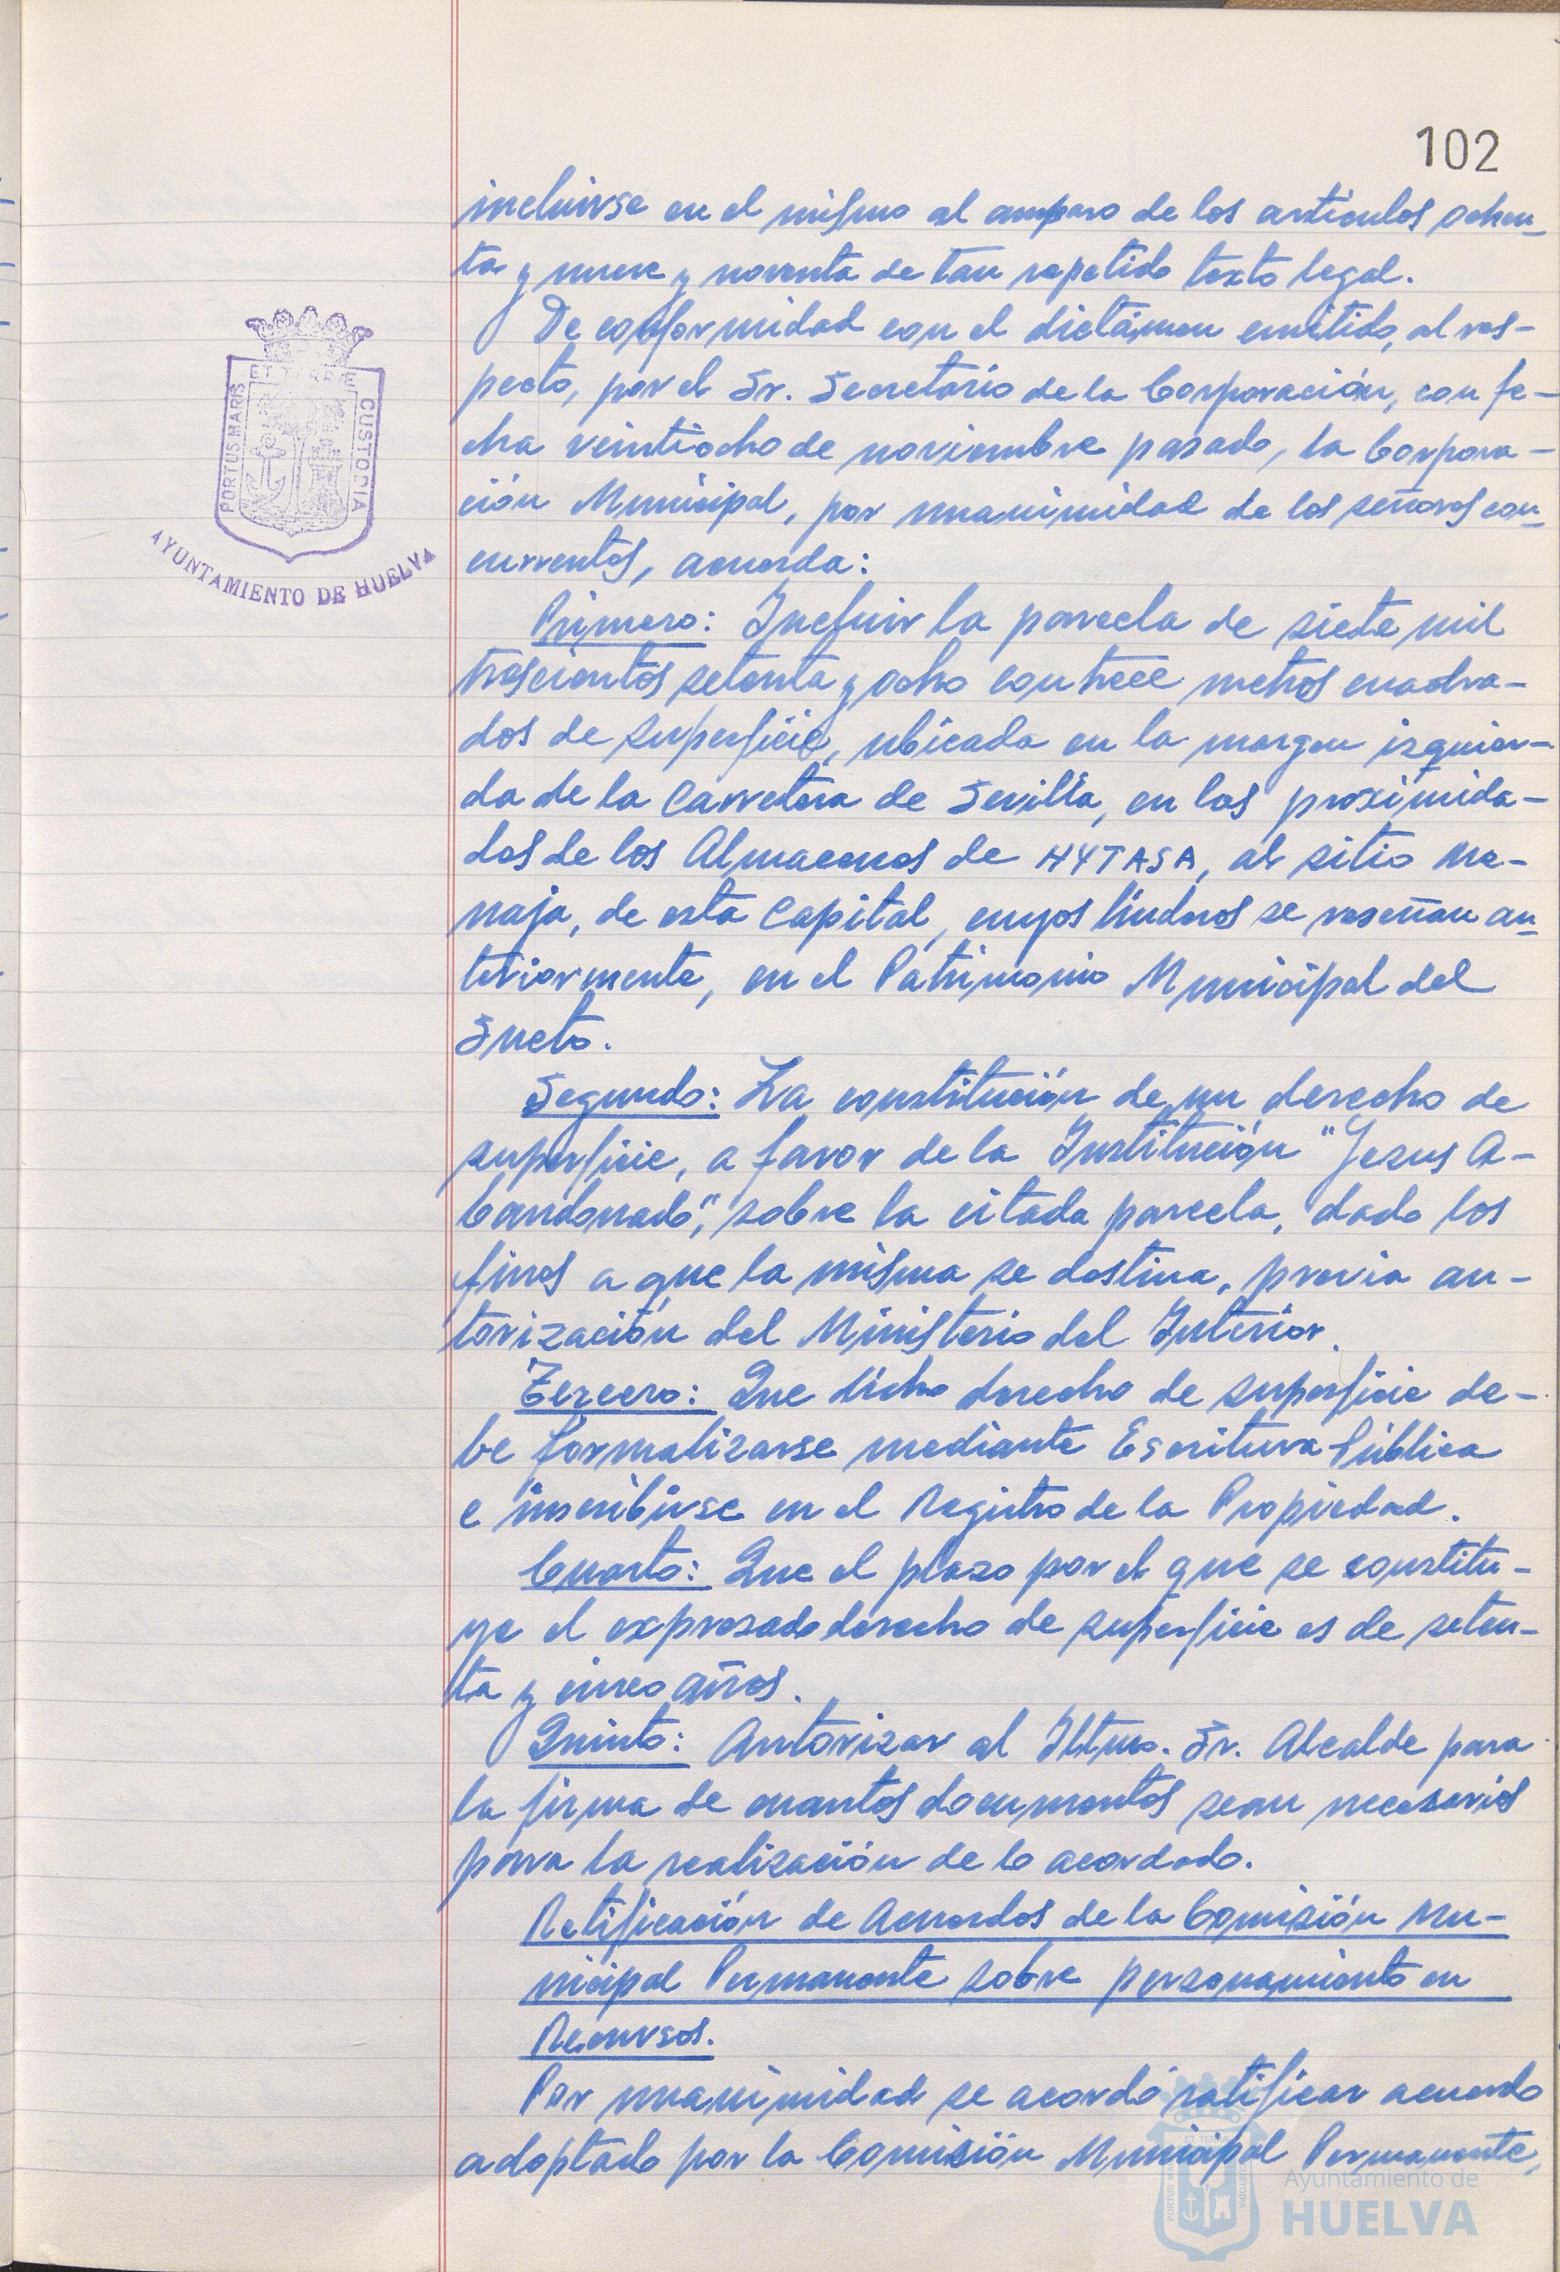 102
incluirse en el mismo al amparo de los artículos ochen-
ta y nueve y noventa de tan repetido texto legal.
De conformidad con el dictámen emitido, al res-
pecto, por el Sr. Secretario de la Corporación, con fe-
cha veintiocho de noviembre pasado, la Corpora-
ción Municipal, por unanimidad de los señores con-
currentes, acuerda:
Primero: Incluir la parcela de siete mil
trescientos setenta y ocho con trece metros cuadra-
dos de superficie, ubicada en la margen izquier-
da de la Carretera de Sevilla, en las proximida-
des de los Almacenes de HYTASA, al sitio Me-
naja, de esta Capital, cuyos linderos se reseñan an-
teriormente, en el Patrimonio Municipal del
Suelo.
Segundo: La constitución de un derecho de
superficie, a favor de la Institución "Jesus A-
bandonado", sobre la citada parcela, dado los
fines a que la misma se destina, previa au-
torización del Ministerio del Interior.
Tercero: Que dicho derecho de superficie de-
be formalizarse mediante Escritura Pública
e inscribirse en el Registro de la Propiedad.
Cuarto: Que el plazo por el que se constitu-
ye el expresado derecho de superficie es de seten-
ta y cinco años.
Quinto: Autorizar al Iltmo. Sr. Alcalde para
la firma de cuantos documentos sean necesarios
para la realización de lo acordado.
Ratificación de Acuerdos de la Comisión Mu-
nicipal Permanente sobre personamiento en
Recursos.
Por unanimidad se acordó ratificar acuerdo
adoptado por la Comisión Municipal Permanente,
PORTUS MARIS
ET TERRE
CUSTODIA
AYUNTAMIENTO DE HUELVA
Ayuntamiento de
HUELVA